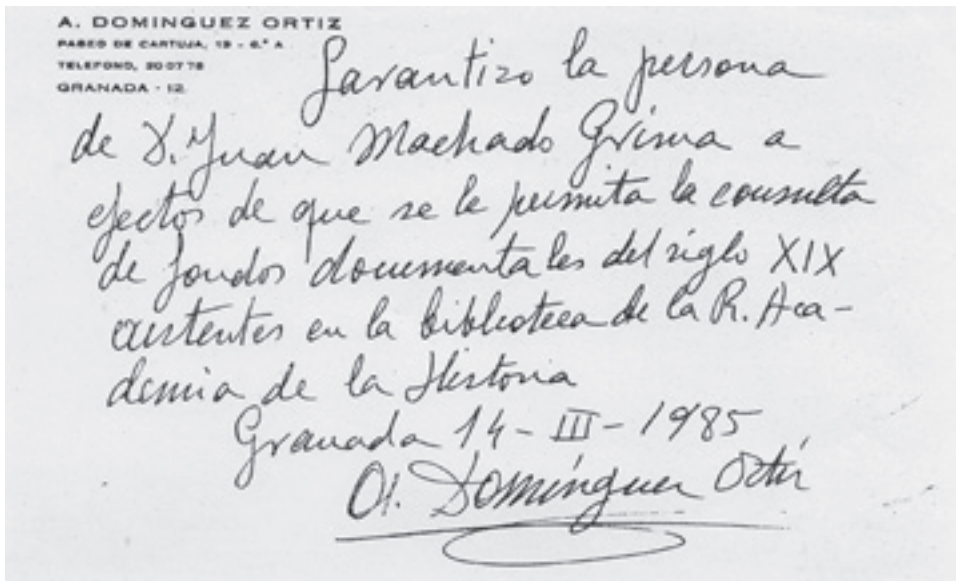 A. DOMINGUEZ ORTIZ
PASEO DE CARTUJA, 19 - 6.° A
TELEFONO, 20 07 78
GRANADA - 12
Garantizo la persona
de D. Juan Machado Grima a
efectos de que se le permita la consulta
de fondos documentales del siglo XIX
existentes en la biblioteca de la R. Aca-
demia de la Historia
Granada 14 - III - 1985
A. Domínguez Ortiz